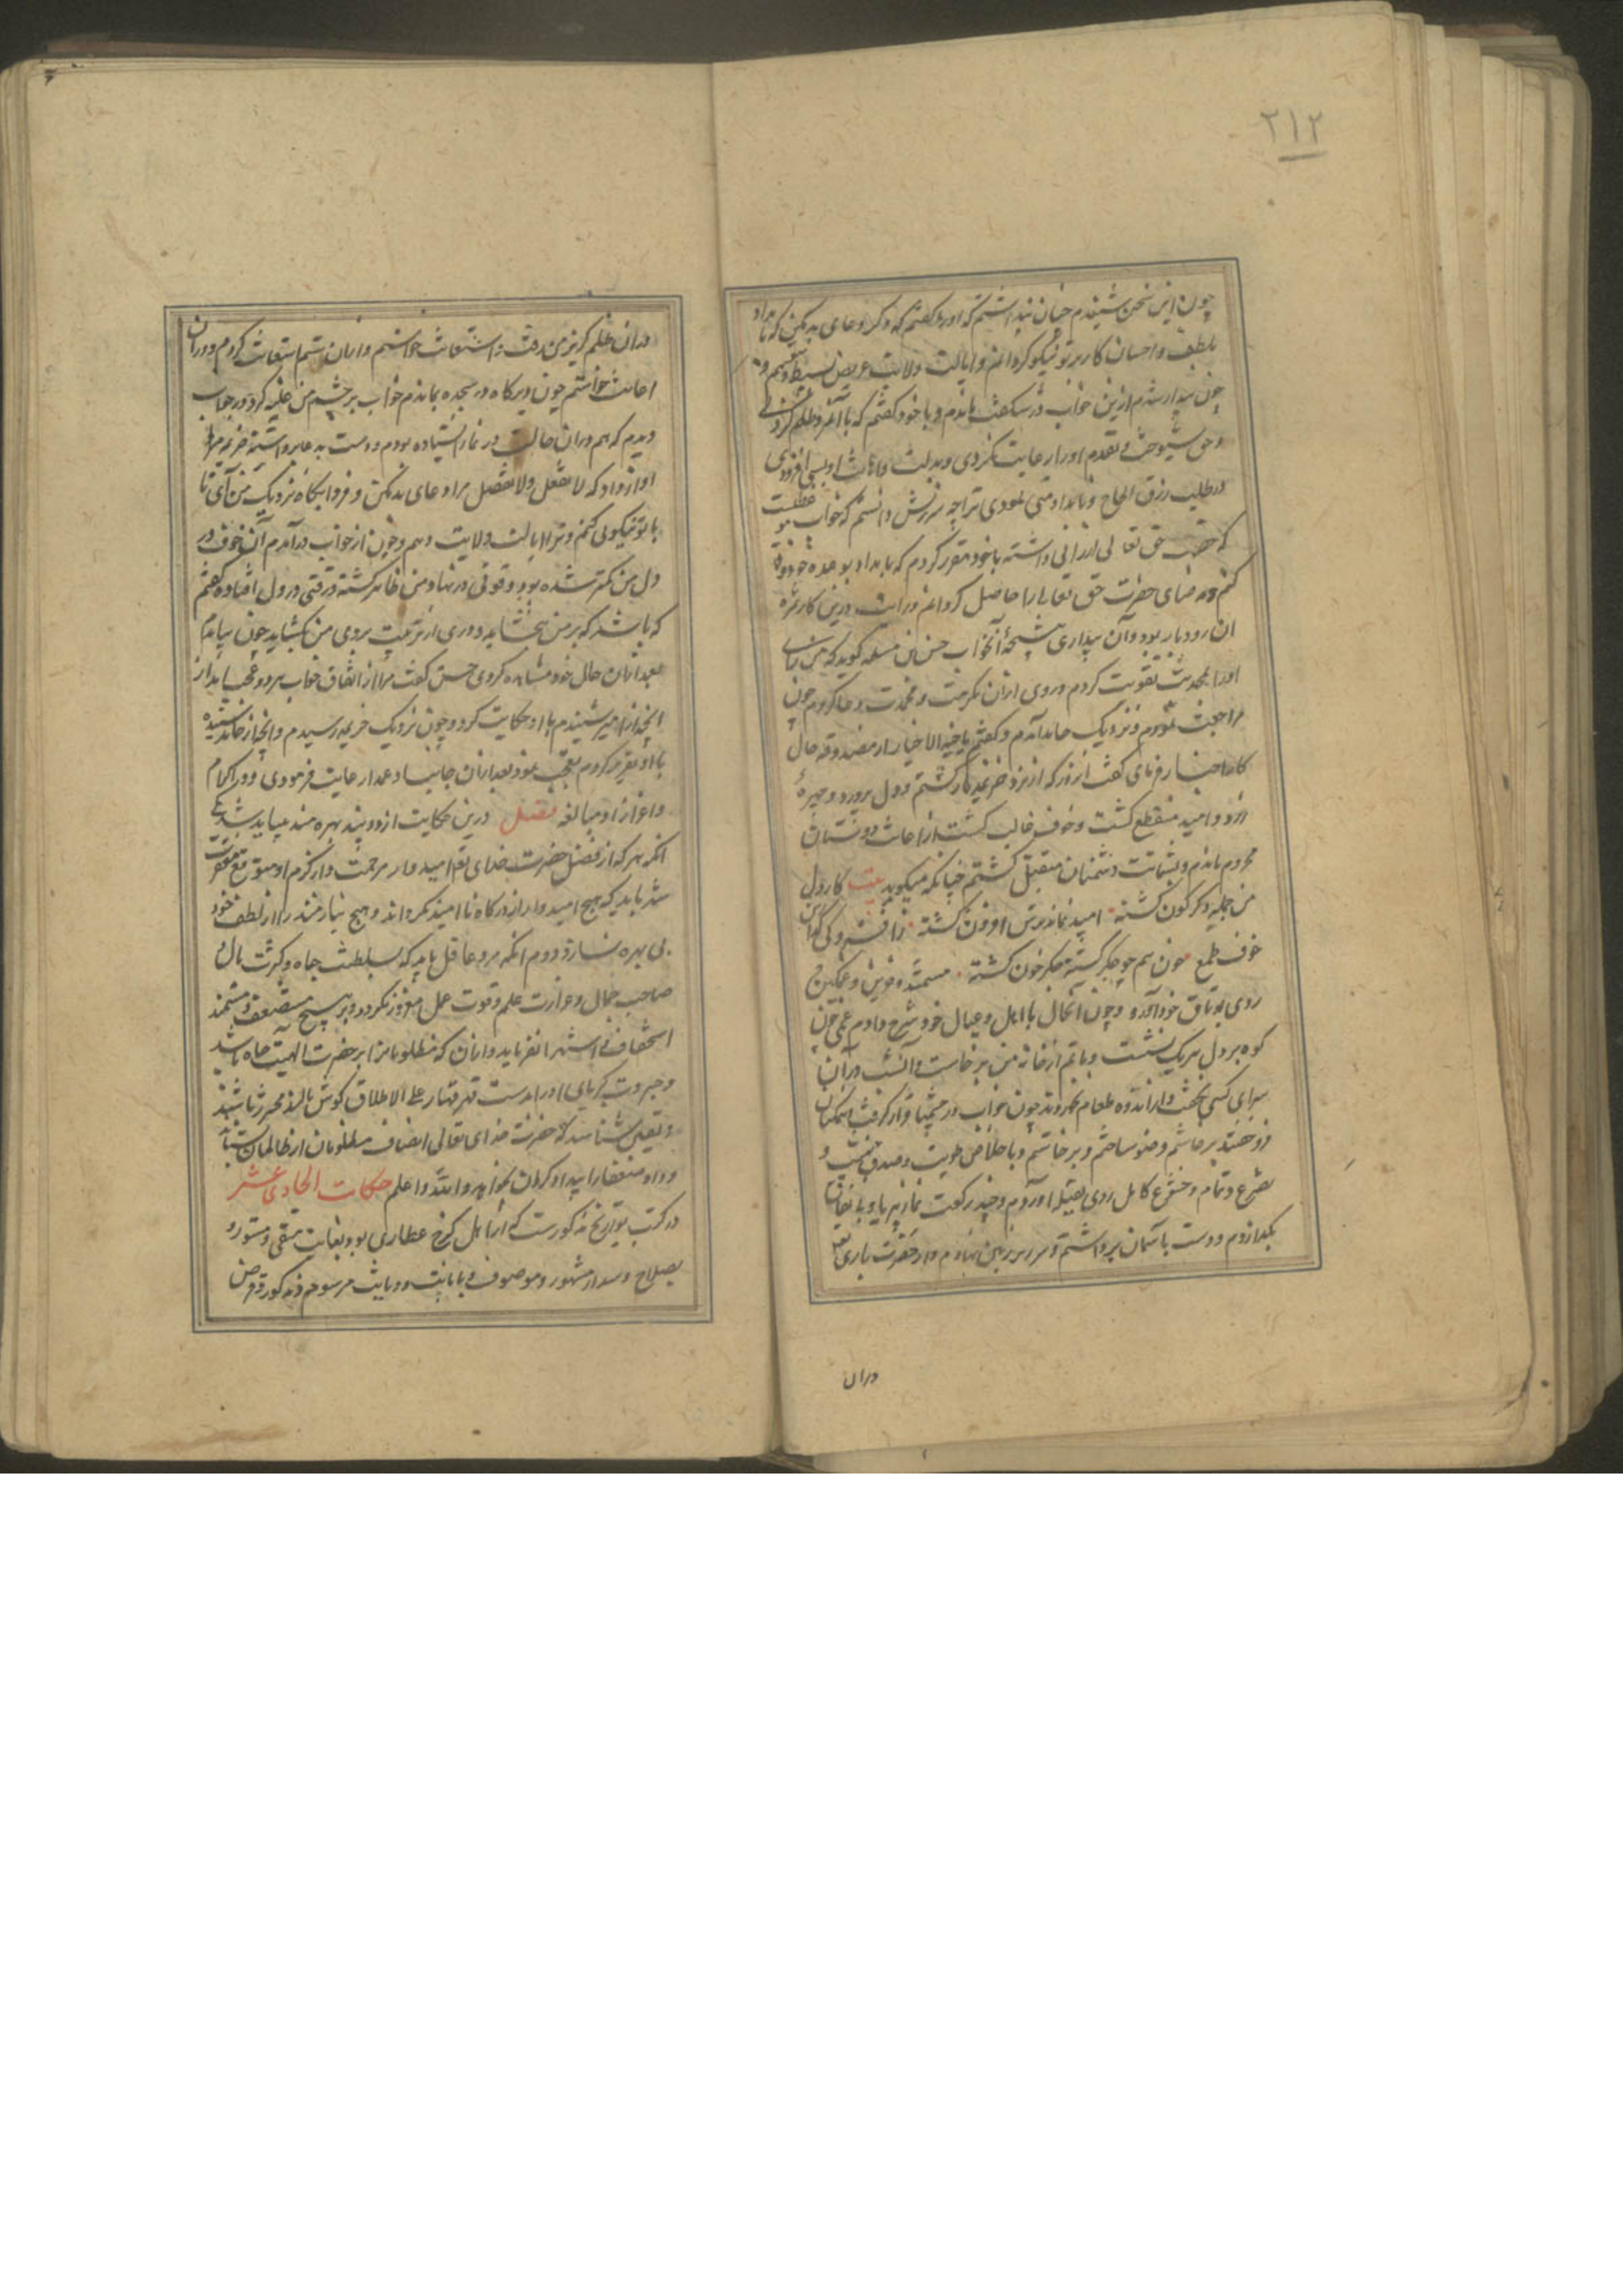 ۲۱۲
چون این سخن بشنیدم چنان پنداشتم که او را گفتم که دگر دعای بد مکن که بامداد
بلطف و احسان کار بر تو نیکو گردانم و ایالت ولایت عریض بسیط دهم و
چون بیدار شدم ازین خواب در شگفت ماندم و با خود گفتم که با آنمرد ظلم کردی
و حق شیوخت و تقدم او را رعایت نکردی و بدلت و اهانت او بسی افزودی
در طلب رزق الحاح و
که حق تعالی ارزانی داشته با خود مقرر کردم که بامداد بوعده خود وفا
کنم و رضای حضرت حق تعالی را حاصل گردانم
آن رویا بود و آن بیداری نتیجه آنخواب حسن بن مسلمه گوید که من
او را بمحمدت تقویت کردم و روی از آن مکرمت و محمدت دعا کردم چون
مراجعت نمودم و نزدیک حامد آمدم و گفتم
گفت آنروز که از نزد خزیمه بازگشتم و دل پر درد و خیره
و امید منقطع گشت و خوف غالب گشت از اعانت دوستان
محروم ماندم و بشماتت دشمنان مبتلی گشتم چنانکه میگوید بیت کار دل
من جمله دگرگون گشته امید نماند و ترس افزون گشته
خوف طمع خون هم جگر گشته جگر خون گشته مستمند و
روی بوثاق خود آورد و چون آنحال با اهل و عیال خود شرح دادم غمی چون
کوه بر دل هر یک بنشست و ماتم از خانه من برخاست و آنشب در آن
سرای کسی نخفت و از اندوه طعام نخوردند چون خواب در چشمها قرار گرفت
فرو خفتند برخاستم وضو ساختم و با خلاص طویت و صدق نیت و
تضرع تمام و خشوع کامل روی بقبله آوردم و چند رکعت نماز
بگذاردم و دست بآسمان برداشتم و سر بر زمین نهادم و از حضرت باری
دران
دران ظلم که بر من رفت استعانت خواستم و ازان ستم استغاثت کردم و دران
اعانت خواستم چون دیرگاه در سجده بماندم خواب بر چشم من غلبه کرد و در خواب
دیدم که هم دران حالت در نماز ایستاده بودم و دست بدعا برداشته خزیمه مرا
آواز داد که لا تفعل ولا تفعل مرا دعای بد مکن و فردا پگاه نزدیک من آی تا
با تو نیکوئی کنم و ترا ایالت ولایت دهم و چون از خواب درآمدم آن خوف در
دل من کمتر شده بود و قوتی در نهاد من ظاهر گشته و رقتی در دل افتاده گفتم
که باشد که بر من بخشاید و دری از تربیت بروی من بگشاید چون بیامدم
بعد ازان حال خود مشاهده کردی حسن گفت مرا از اتفاق خواب هر دو عجب آمد از
آنچه از امیر شنیدم با او حکایت کرد و چون نزدیک خزیمه رسیدم و آنچه از حامد شنیده
با او تقریر کردم تعجب نمود بعد ازان جانب او را رعایت فرمودی و در اکرام
و اعزاز او مبالغه فصل درین حکایت از دو پند بهره مند میباید شد یکی
آنکه هر که از فضل حضرت خدای تعالی امیدوار مرحمت و از کرم او متوقع مغفرت
شد باید که هیچ امیدوار از درگاه ناامید نگرداند و هیچ نیازمند را از لطف خود
بی بهره نسازد و دوم آنکه مرد عاقل باید که بسلطنت جاه و کثرت مال و
صاحب جمال و غزارت علم و قوت عمل مغرور نگردد و بر هیچ مستضعف و مستمند
استخفاف و استهزا نفرماید و ازان که مظلومانرا بر حضرت الهیت جاه باشد
و جبروت کبریای او را دست قهر قهار علی الاطلاق گوش مالد محترز باشند
و یقین شناسد که حضرت خدای تعالی انصاف مظلومان از ظالمان بستاند
و داد ضعفا را بیدادگران بخواهد والله اعلم حکایت الحادی عشر
در کتب تواریخ مذکورست که از اهل کرخ عطاری بود بغایت متقی و مستور و
بصلاح و سداد مشهور و موصوف و بامانت و دیانت مرسوم و مذکور قرض